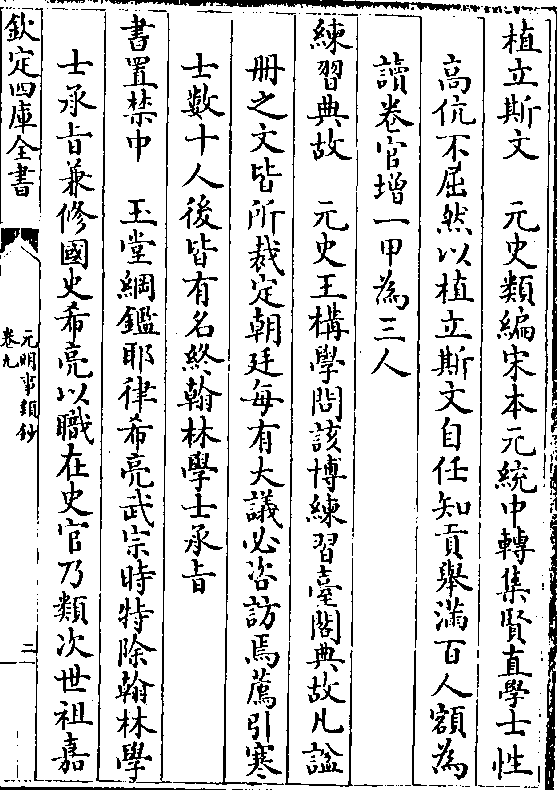 植立斯文　元史類編宋本元統中轉集賢直學士性
高伉不屈然以植立斯文自任知貢舉滿百人額為
讀卷官增一甲為三人
練習典故　元史王構學問該博練習臺閣典故凡諡
冊之文皆所裁定朝廷每有大議必咨訪焉薦引寒
士數十人後皆有名終翰林學士承旨
書置禁中　玉堂綱鑑耶律希亮武宗時特除翰林學
士承旨兼修國史希亮以職在史官乃類次世祖嘉
欽定四庫全書
元明事類鈔
卷九
二